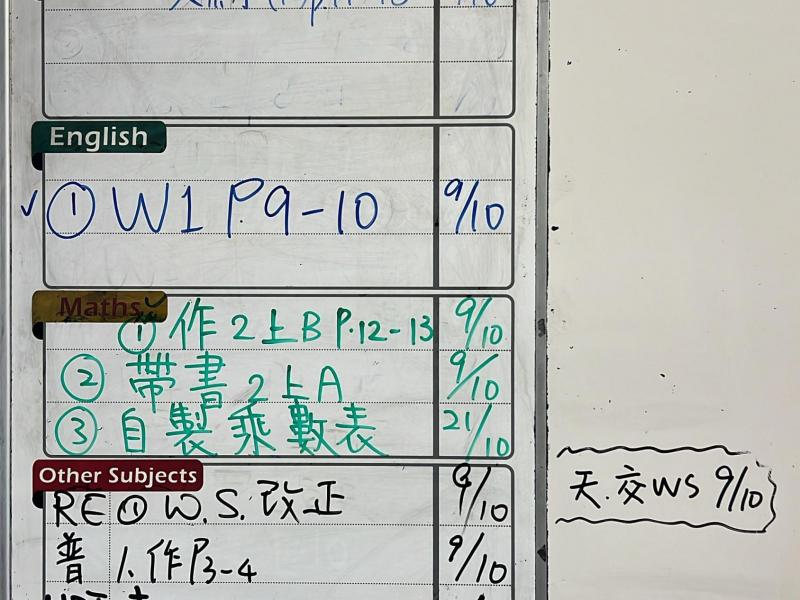 English
① W1 P.9-10 9/10
Maths
① 作2上B P.12-13 9/10
② 帶書2上A 9/10
③ 自製乘數表 21/10
Other Subjects
RE ① W.S. 改正 9/10
天.交WS 9/10
普 1.作P3-4 9/10